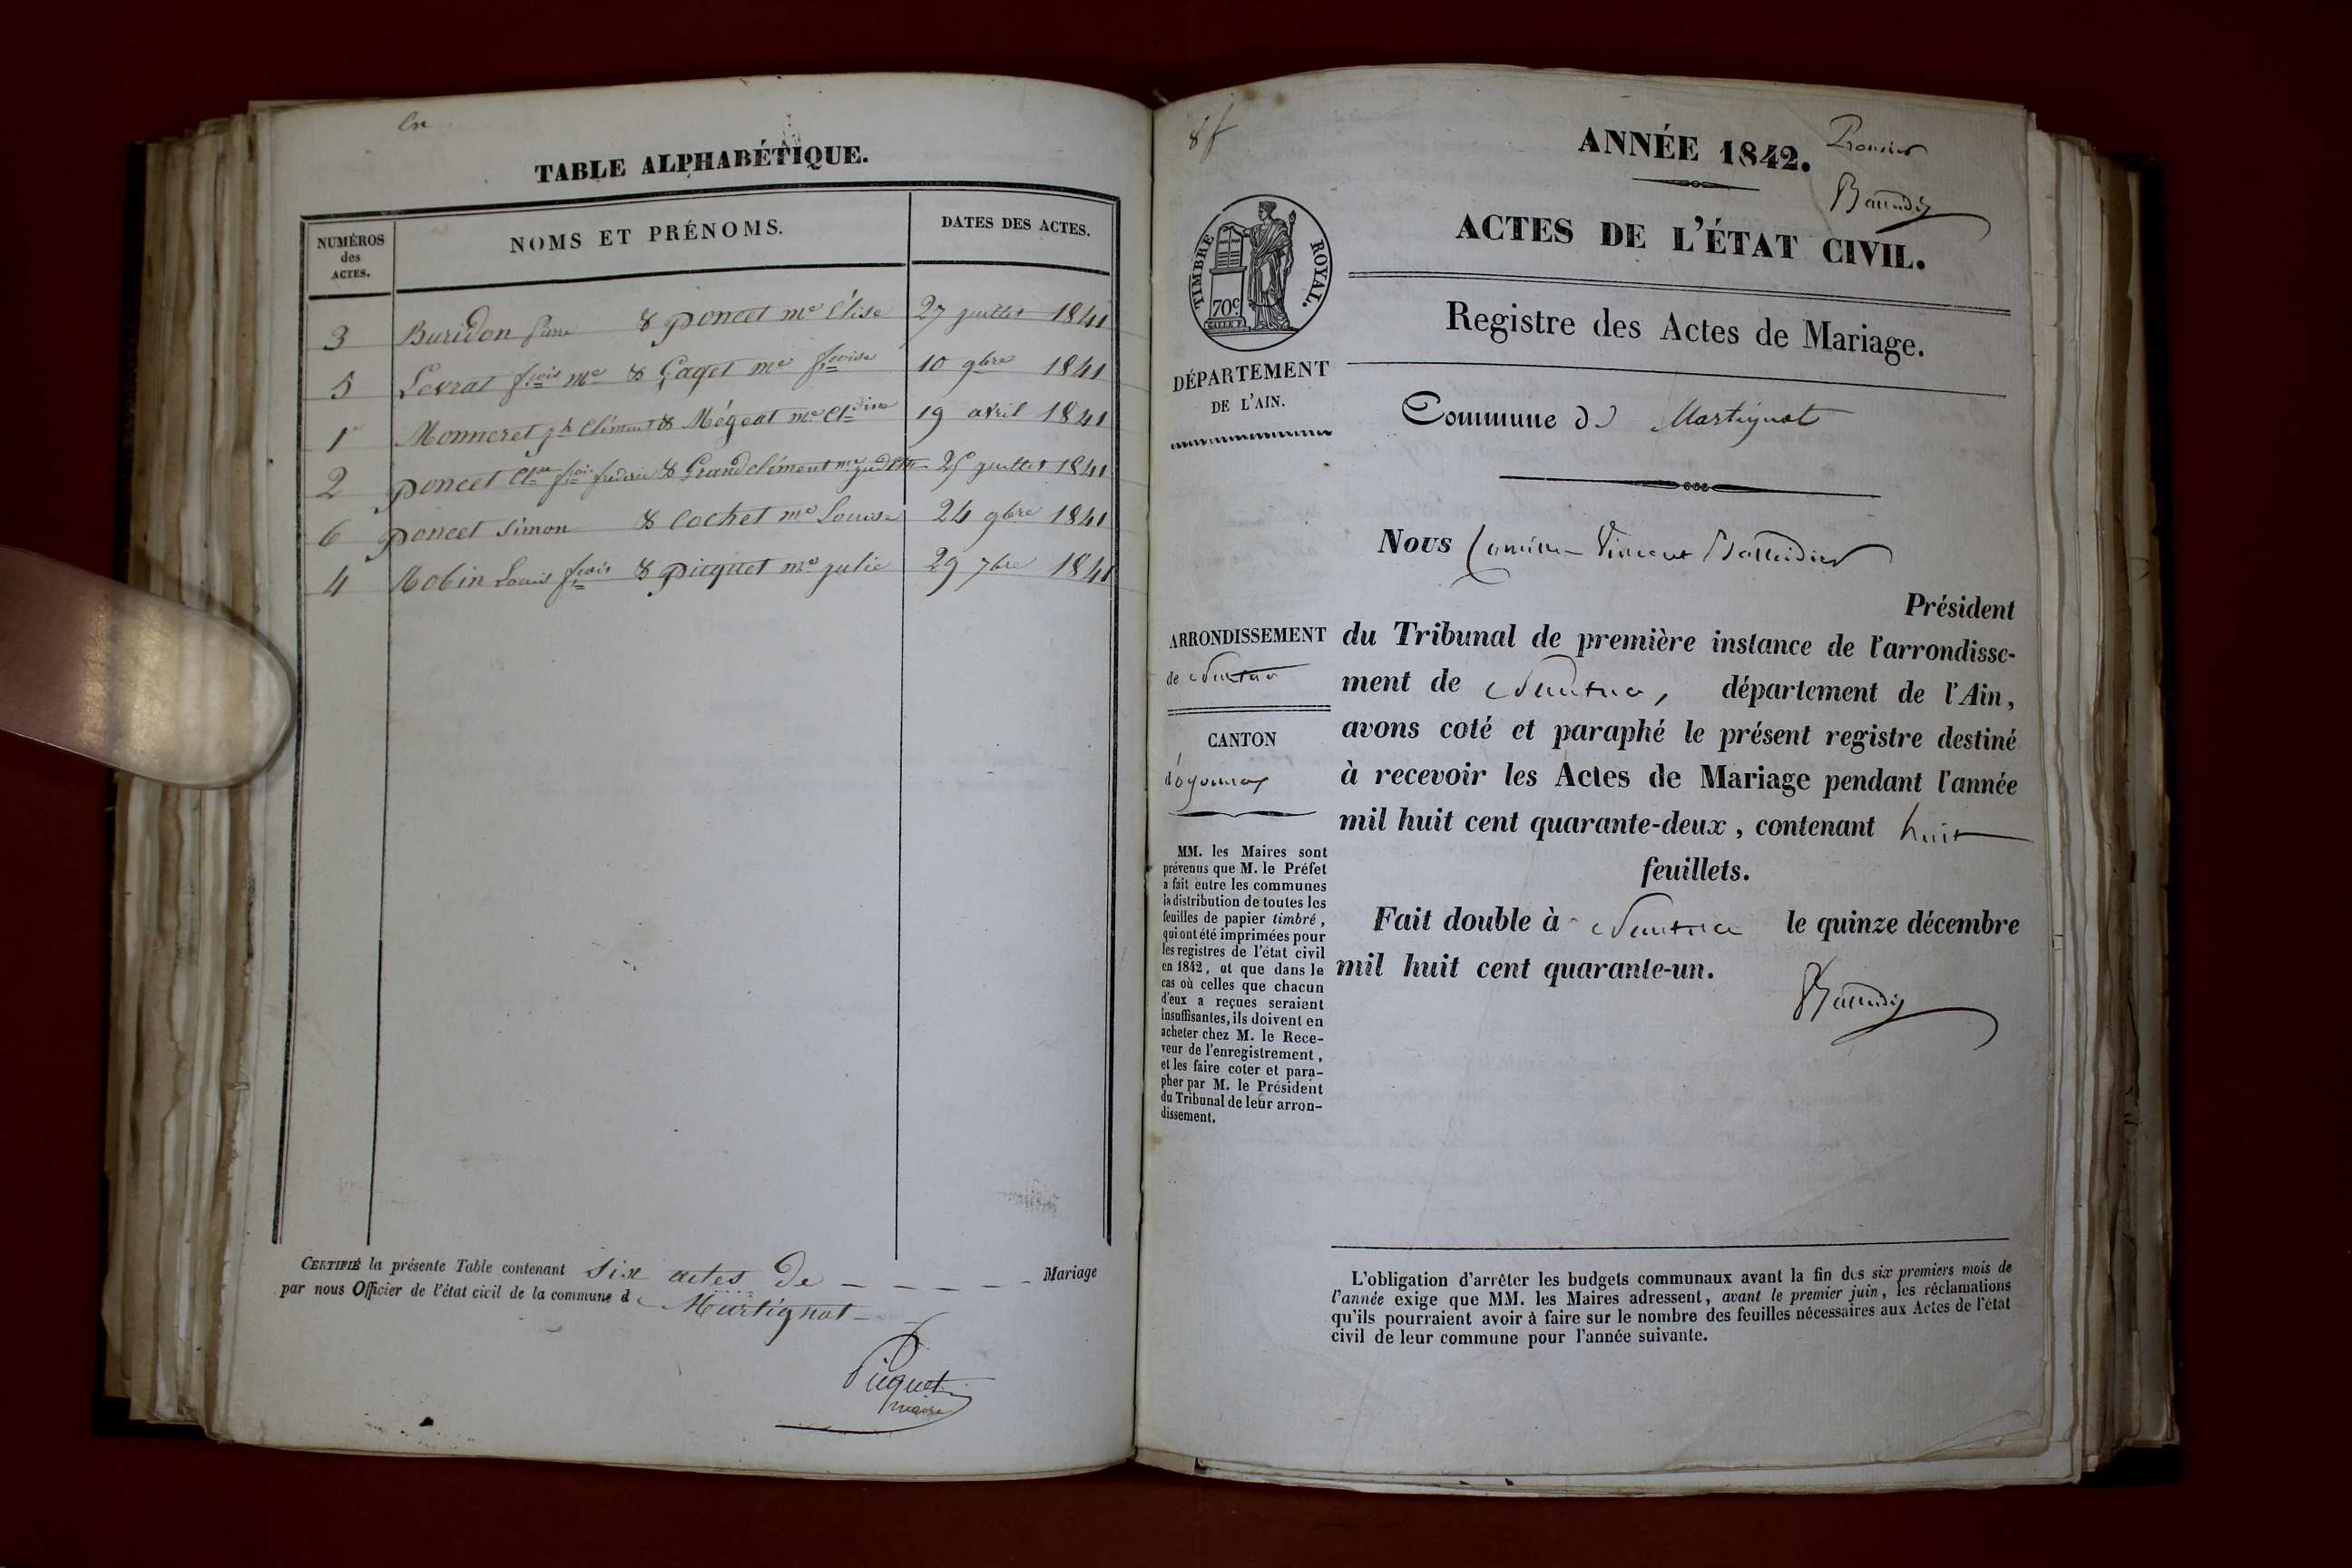 TABLE ALPHABÉTIQUE.
NUMÉROS
des
ACTES.
NOMS ET PRÉNOMS.
DATES DES ACTES.
3 Buridon & poncet me Elise 27 juillet 1841
5 Levrat fcois me & Gaget me fcoise 10 9bre 1841
1er Monneret jh Clément & Mégeat me Cldine 19 avril 1841
2 poncet Cde fcois frédéric & Grandclément me judith 25 juillet 1841
6 poncet Simon & Cochet me Louise 24 9bre 1841
4 Robin Louis fcois & piquet me julie 29 7bre 1841
CERTIFIÉ la présente Table contenant Six actes de Mariage
par nous Officier de l'état civil de la commune de Martignat
Piquet
maire
8 f
ANNÉE 1842. Premier
ACTES DE L'ÉTAT CIVIL.
TIMBRE ROYAL.
70c
Registre des Actes de Mariage.
DÉPARTEMENT
DE L'AIN.
Commune de Martignat
Nous Vincent
Président
ARRONDISSEMENT
de Nantua
CANTON
d'oyonnax
du Tribunal de première instance de l'arrondisse-
ment de Nantua, département de l'Ain,
avons coté et paraphé le présent registre destiné
à recevoir les Actes de Mariage pendant l'année
mil huit cent quarante-deux, contenant huit
feuillets.
Fait double à Nantua le quinze décembre
mil huit cent quarante-un.
MM. les Maires sont
prévenus que M. le Préfet
a fait entre les communes
la distribution de toutes les
feuilles de papier timbré,
qui ont été imprimées pour
les registres de l'état civil
en 1842, et que dans le
cas où celles que chacun
d'eux a reçues seraient
insuffisantes, ils doivent en
acheter chez M. le Rece-
veur de l'enregistrement,
et les faire coter et para-
pher par M. le Président
du Tribunal de leur arron-
dissement.
L'obligation d'arrêter les budgets communaux avant la fin des six premiers mois de
l'année exige que MM. les Maires adressent, avant le premier juin, les réclamations
qu'ils pourraient avoir à faire sur le nombre des feuilles nécessaires aux Actes de l'état
civil de leur commune pour l'année suivante.